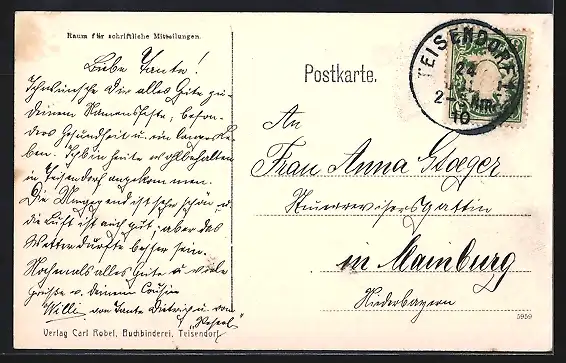 Raum für schriftliche Mitteilungen.
Liebe Tante!
Ich wünsche Dir alles Gute zu
Deinem Namensfeste; beson-
ders Gesundheit u. ein langes Le-
ben. Ich bin heute wohlbehalten
in Teisendorf angekommen.
Die Umgegend ist sehr schön, u.
die Luft ist auch gut; aber das
Wetter dürfte besser sein.
Nochmals alles Gute u. viele
Grüße v. deinem Cousin
Willi von Tante Dietrich u. von
Verlag Carl Robel, Buchbinderei, Teisendorf
Postkarte.
TEISENDORF
24
2-
10
An
Frau Anna Stoeger
in Mainburg
Niederbayern
5959